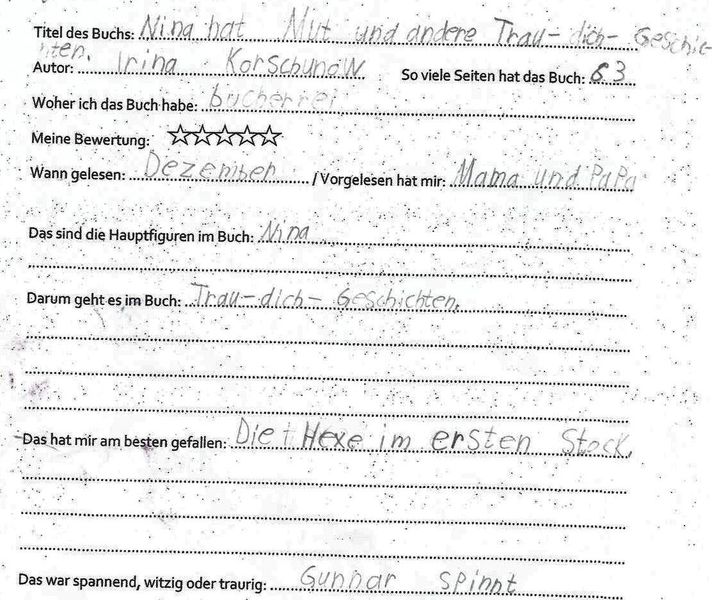 Titel des Buchs: Nina hat Mut und andere Trau-dich-Geschic-
hten.
Autor: Irina Korschunow So viele Seiten hat das Buch: 63
Woher ich das Buch habe: bücherrei
Meine Bewertung: ☆☆☆☆☆
Wann gelesen: Dezember / Vorgelesen hat mir: Mama und Papa
Das sind die Hauptfiguren im Buch: Nina
Darum geht es im Buch: Trau-dich-Geschichten.
Das hat mir am besten gefallen: Die Hexe im ersten Stock.
Das war spannend, witzig oder traurig: Gunnar spinnt